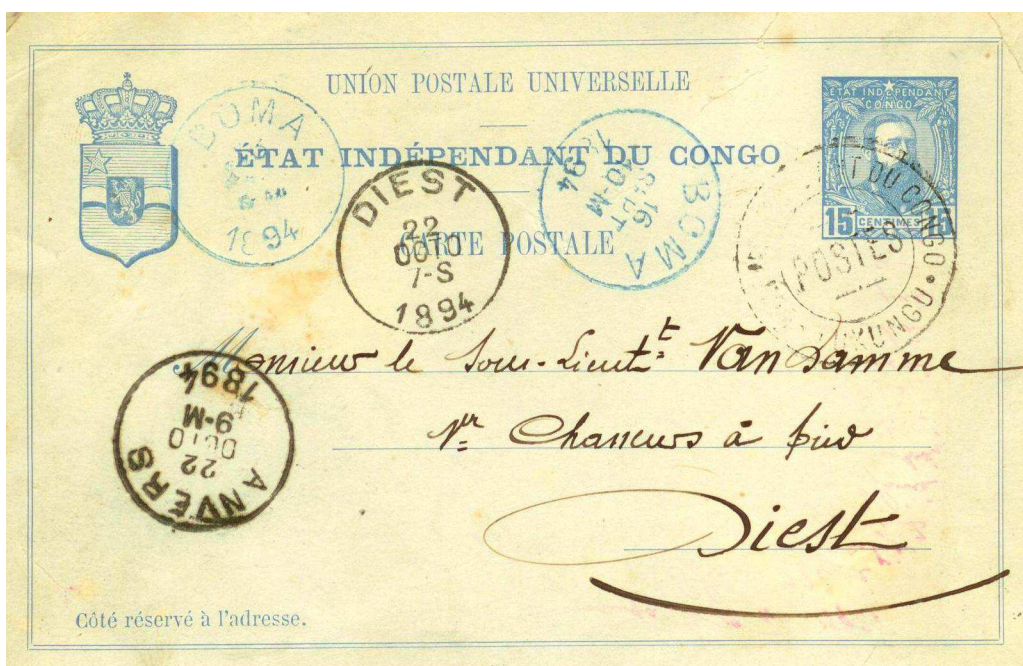 UNION POSTALE UNIVERSELLE
ÉTAT INDÉPENDANT DU CONGO
CARTE POSTALE
ÉTAT INDÉPENDANT
CONGO
15 CENTIMES 15
BOMA
1894
DIEST
22
OCTO
7-S
1894
BOMA
16
10-M
94
T DU CONGO
POSTES
UKUNGU
ANVERS
22
OCTO
9-M
1894
Monsieur le Sous-Lieutt Van Damme
1r Chasseurs à pied
Diest
Côté réservé à l'adresse.